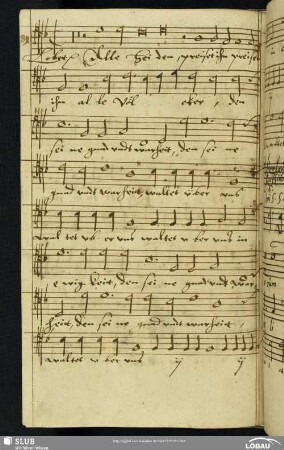 Lobet Alle Heiden, preiset ihn preiset
ihn al le Völ cker, den
sei ne gnad undt warheit, den sei ne
gnad undt warheit, waltet uber uns
wal tet ub er uns waltet u ber uns in
e wig keit, den sei ne gnad undt war
heit, den sei ne gnad undt warheit,
waltet u ber uns ij ij
SLUB
Wir führen Wissen.
LOBAU